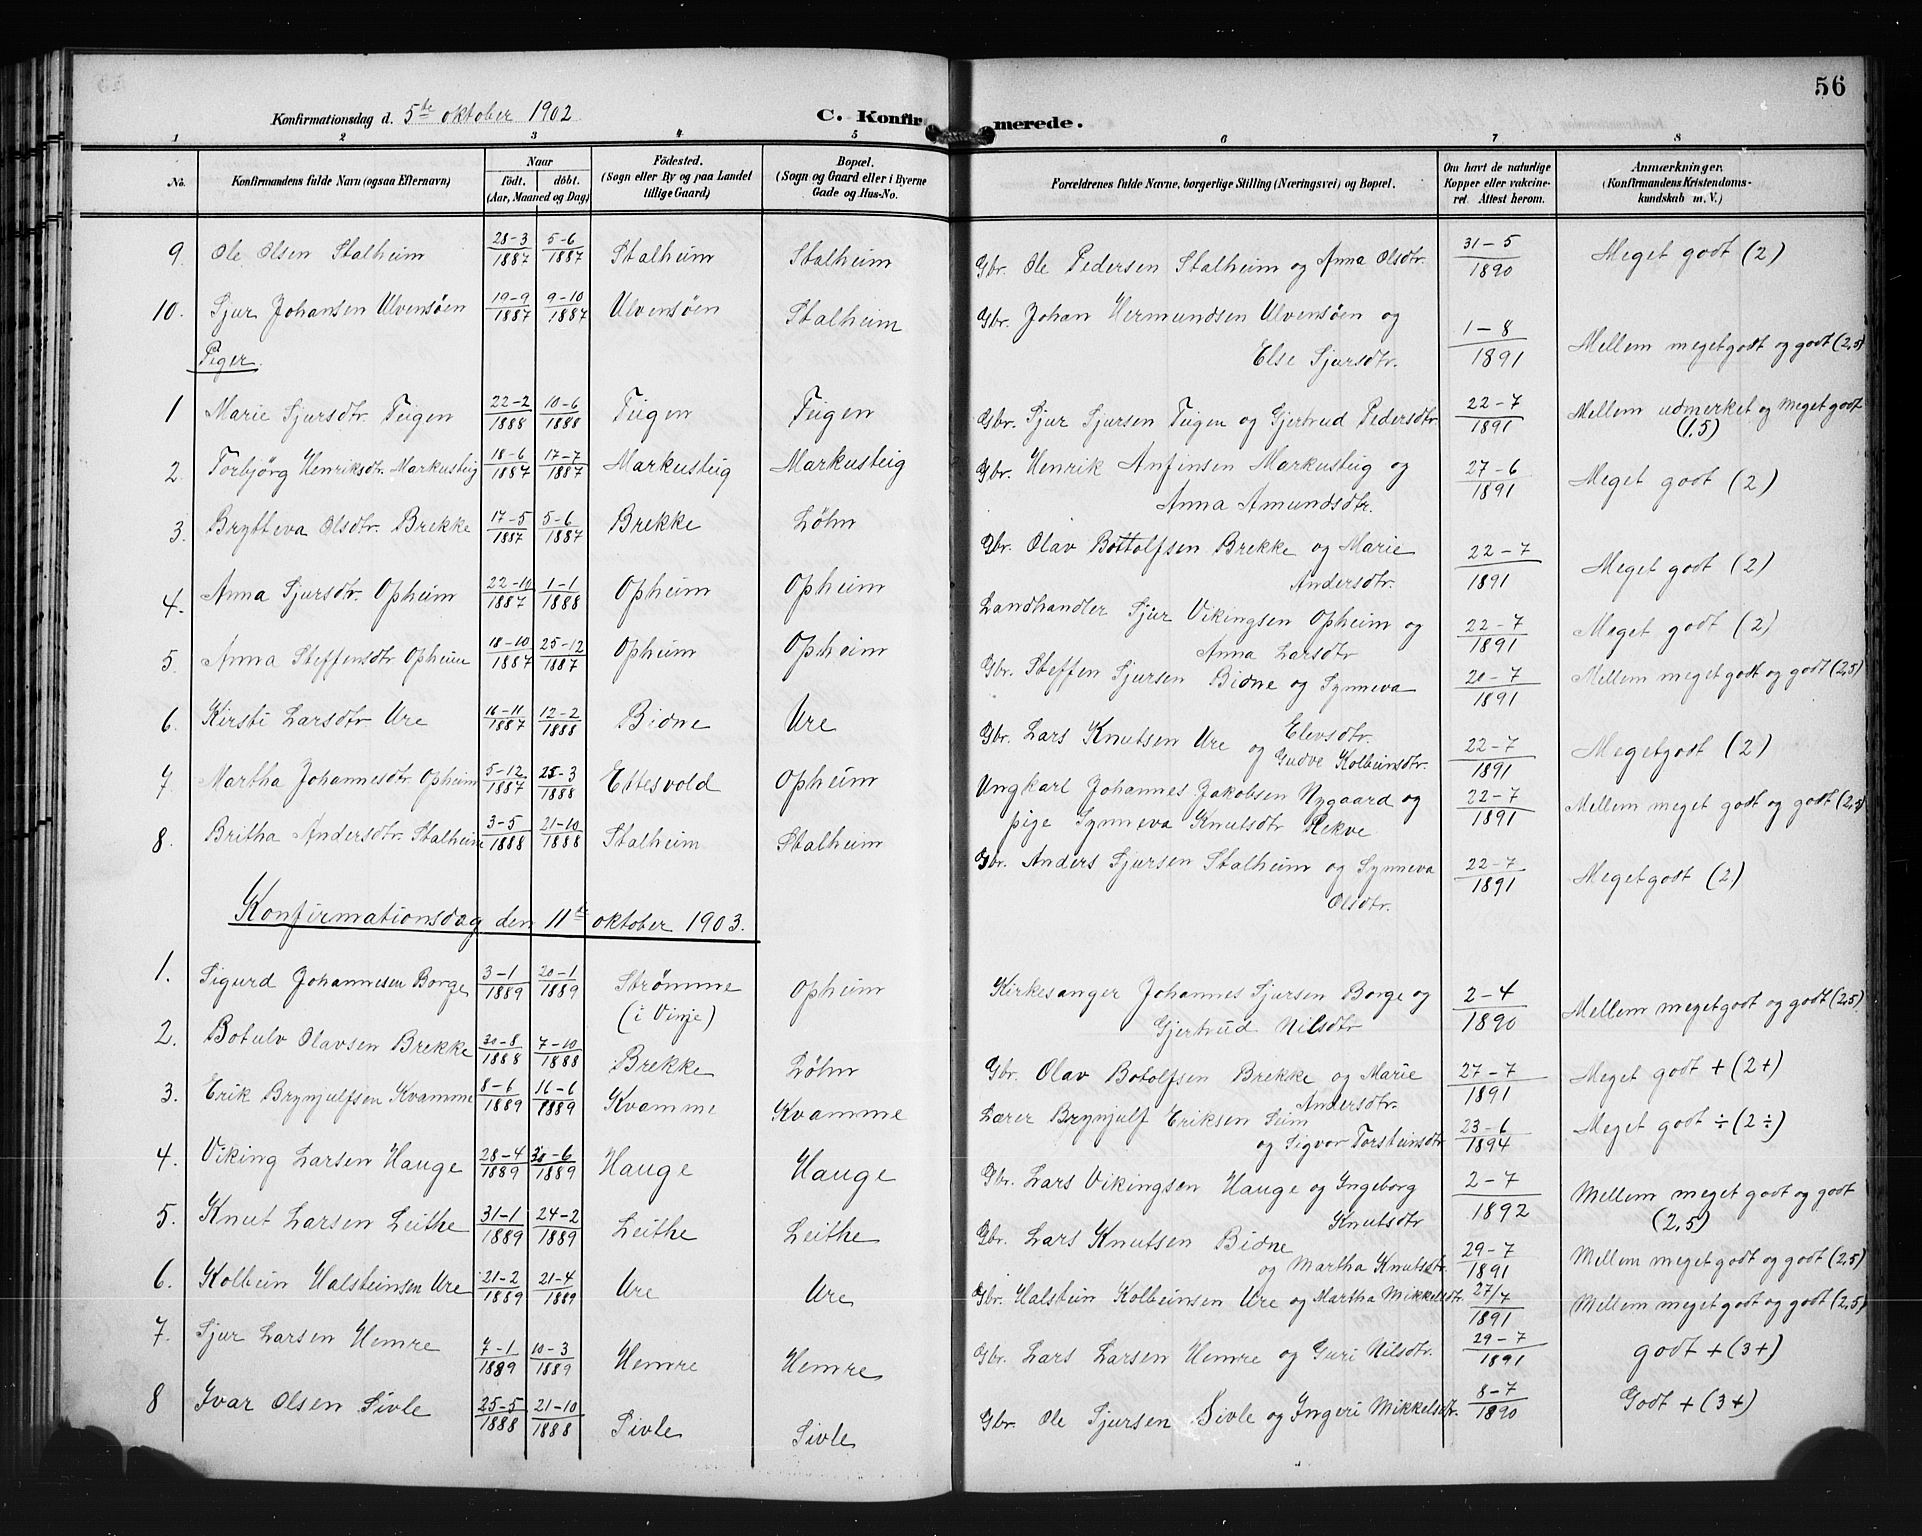 56
Konfirmationsdag d. 5te oktober 1902
C. Konfirmerede.
1 2 3 4 5 6 7 8
No. Konfirmandens fulde Navn (ogsaa Efternavn) Naar Födt. döbt. (Aar, Maaned og Dag) Födested. (Sogn eller By og paa Landet tillige Gaard) Bopæl. (Sogn og Gaard eller i Byerne Gade og Hus-No. Forældrenes fulde Navne, borgerlige Stilling (Næringsvei) og Bopæl. Om havt de naturlige Kopper eller vakcineret. Attest herom. Anmærkninger. (Konfirmandens Kristendomskundskab m. V.)
9. Ole Olsen Stalheim 28-3 1887 5-6 1887 Stalheim Stalheim Gbr. Ole Pedersen Stalheim og Anna Olsdtr. 31-5 1890 Meget godt (2)
10. Sjur Johansen Ulvensöen 19-9 1887 9-10 1887 Ulvensöen Stalheim Gbr. Johan Hermundsen Ulvensöen og Else Sjursdtr. 1-8 1891 Mellem meget godt og godt (2,5)
Piger.
1 Marie Sjursdtr. Teigen 22-2 1888 10-6 1888 Teigen Teigen Gbr. Sjur Sjursen Teigen og Gjertrud Pedersdtr. 22-7 1891 Mellem udmerket og meget godt (1,5)
2. Torbjörg Henriksdtr. Markusteig 18-6 1887 17-7 1887 Markusteig Markusteig Gbr. Henrik Anfinsen Markusteig og Anna Amundsdtr. 27-6 1891 Meget godt (2)
3. Brytteva Olsdtr. Brekke 17-5 1887 5-6 1887 Brekke Löhn Gbr. Olav Bottolfsen Brekke og Marie Andersdtr. 22-7 1891 Meget godt (2)
4. Anna Sjursdtr. Opheim 22-10 1887 1-1 1888 Opheim Opheim Landhandler Sjur Vikingsen Opheim og Anna Larsdtr 22-7 1891 Meget godt (2)
5. Anna Steffensdtr Opheim 18-10 1887 25-12 1887 Opheim Opheim Gbr. Steffen Sjursen Bidne og Synneva Elevsdtr. 20-7 1891 Mellem meget godt og godt (2,5)
6. Kirsti Larsdtr Ure 16-11 1887 12-2 1888 Bidne Ure Gbr. Lars Knutsen Ure og Gudve Kolbeinsdtr. 22-7 1891 Meget godt (2)
7. Martha Johannesdtr Opheim 5-12 1887 25-3 1888 Ettesvold Opheim Ungkarl Johannes Jakobsen Nygaard og pige Synneva Knutsdtr Rekve 22-7 1891 Mellem meget godt og godt (2,5)
8. Britha Andersdtr. Stalheim 3-5 1888 21-10 1888 Stalheim Stalheim Gbr. Anders Sjursen Stalheim og Synneva Olsdtr. 22-7 1891 Meget godt (2)
Konfirmationsdag den 11te oktober 1903.
1. Sigurd Johannesen Borge 3-1 1889 20-1 1889 Strömme (i Vinje) Opheim Kirkesanger Johannes Sjursen Borge og Gjertrud Nilsdtr 2-4 1890 Mellem meget godt og godt (2,5)
2. Botulv Olavsen Brekke 30-8 1888 7-10 1888 Brekke Löhn Gbr. Olav Botolfsen Brekke og Marie Andersdtr. 27-7 1891 Meget godt + (2+)
3. Erik Brynjulfsen Kvamme 8-6 1889 16-6 1889 Kvamme Kvamme Lærer Brynjulf Eriksen Seim og Sigvor Torsteinsdtr 23-6 1894 Meget godt ÷ (2÷)
4. Viking Larsen Hauge 28-4 1889 30-6 1889 Hauge Hauge Gbr. Lars Vikingsen Hauge og Ingeborg Knutsdtr 2-7 1892 Mellem meget godt og godt (2,5)
5. Knut Larsen Leithe 31-1 1889 24-2 1889 Leithe Leithe Gbr. Lars Knutsen Bidne og Martha Knutsdtr. 29-7 1891 Mellem meget godt og godt (2,5)
6. Kolbein Halsteinsen Ure 21-2 1889 21-4 1889 Ure Ure Gbr. Halstein Kolbeinsen Ure og Martha Mikkelsdtr. 27/7 1891 Mellem meget godt og godt (2,5)
7. Sjur Larsen Hemre 7-1 1889 10-3 1889 Hemre Hemre Gbr. Lars Larsen Hemre og Guri Nilsdtr. 29-7 1891 godt + (3+)
8 Ivar Olsen Sivle 25-5 1888 21-10 1888 Sivle Sivle Gbr. Ole Sjursen Sivle og Ingeri Mikkelsdtr. 8-7 1890 Godt + (3+)